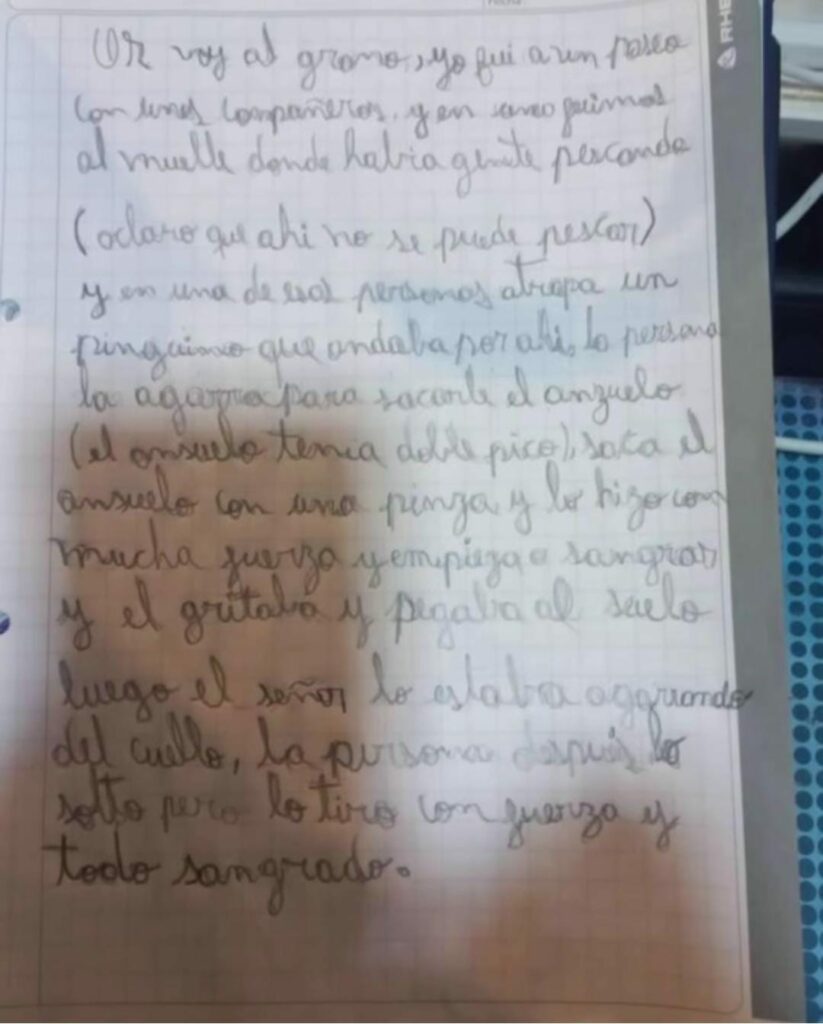 Ok voy al grano, yo fui a un paseo
con unos compañeros, y en uno fuimos
al muelle donde habia gente pescando
(aclaro que ahi no se puede pescar)
y en una de esas personas atrapa un
pinguino que andaba por ahi, la persona
la agarra para sacarle el anzuelo
(el ansuelo tenia doble pico), saca el
ansuelo con una pinza y lo hizo con
mucha fuerza y empieza a sangrar
y el gritaba y pegaba al suelo
luego el señor lo estaba agarrando
del cuello, la persona despues lo
solto pero lo tiro con fuerza y
todo sangrado.